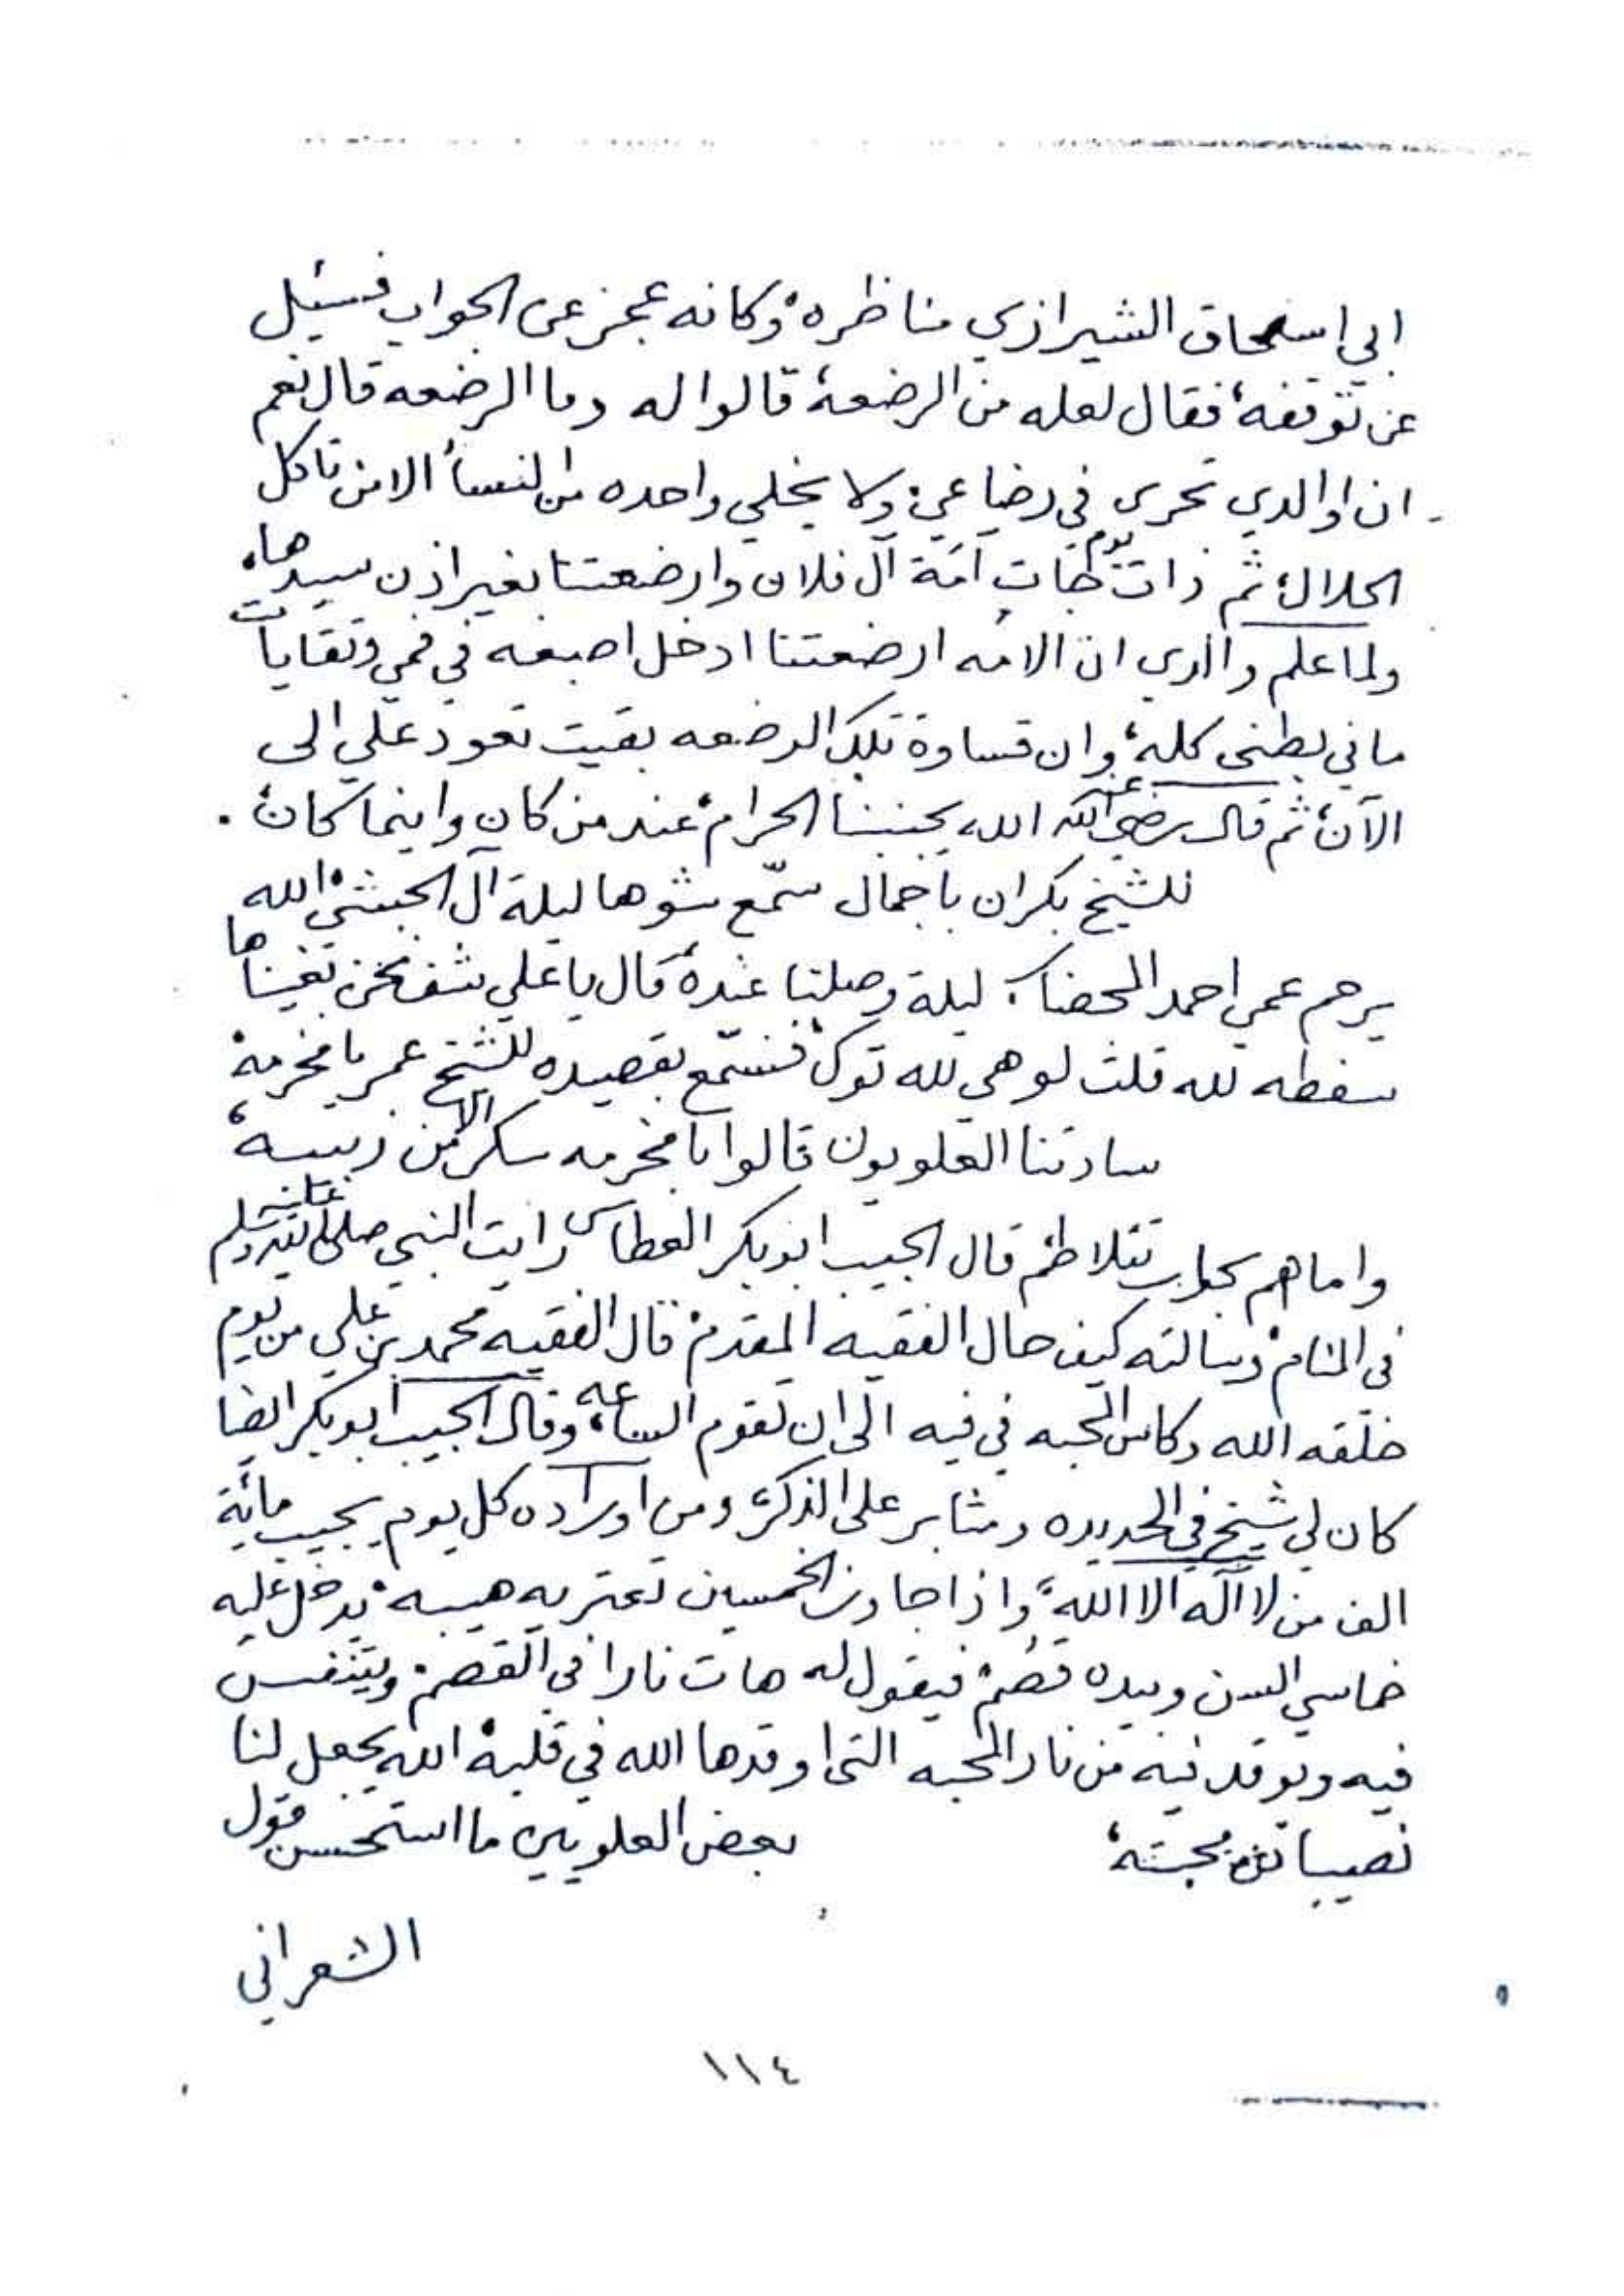 ابي اسحاق الشيرازي مناظره، وكانه عجز عن الجواب فسئيل
عن توقفه، فقال لعله من الرضعة، قالوا له وما الرضعه قال نعم
ان اوالدي تحرى في رضاعي، ولا يخلي واحده من النسأ الا من تاكل
الحلال، ثم ذات يوم جات أمة آل فلان وارضعتنا بغير اذن سيدها،
ولما علم والدي ان الامه ارضعتنا ادخل اصبعه في فمي وتقايات
ما في بطني كله، وان قساوة تلك الرضعه بقيت تعود علي الى
الآن، ثم قال رضي الله عنه الله يجنبنا الحرام، عند من كان واينما كان.
للشيخ بكران باجمال سمّع شوها ليلة آل الحبشي، الله
يرحم عمي احمد المحضار ليلة وصلنا عنده، قال يا علي شف نحن بغيناها
سفطه لله قلت لو هي لله توك، فنسمّع بقصيده للشيخ عمر بامخرمة،
سادتنا العلويون قالوا بامخرمه سكر الا من زبيبه،
واما هم بحار تتلاطم قال الحبيب ابوبكر العطاس رايت النبي صلى الله عليه وسلم
في المنام، وسالته كيف حال الفقيه المقدم، قال الفقيه محمد بن علي من يوم
خلقه الله وكاس المحبه في فيه الى ان تقوم الساعه، وقال الحبيب ابوبكر ايضا
كان لي شيخ في الحديده ومثابر على الذكر، ومن اوراده كل يوم يجيب مائة
الف من لا آله الا الله، واذا جاوز الخمسين تعتريه هيبه، يدخل عليه
خماسي السن وبيده قصم، فيقول له هات نارا في القصم، ويتنفس
فيه ويوقد فيه من نار المحبه التي اوقدها الله في قلبه، الله يجعل لنا
نصيبا من محبته، بعض العلويين ما استحسن قول
الشعراني
١١٤